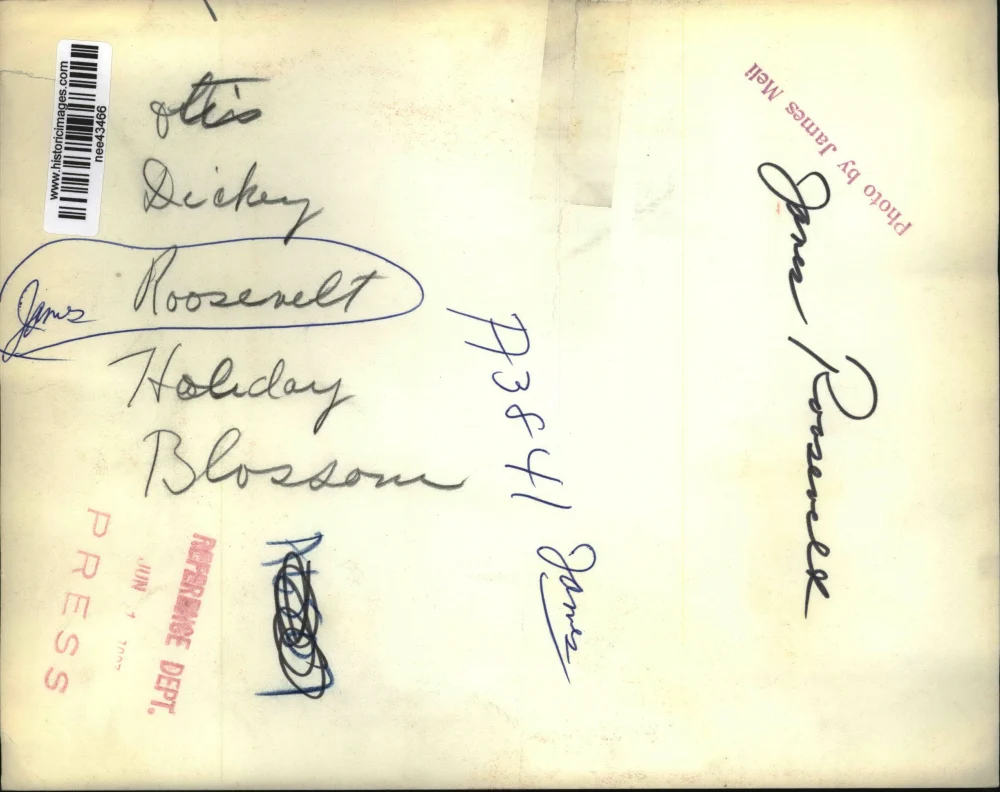 www.historicimages.com
nee43466
Otis
Dickey
James Roosevelt
Holiday
Blossom
A3841
James
James Roosevelt
Photo by James Meli
REFERENCE DEPT.
JUN 1
PRESS